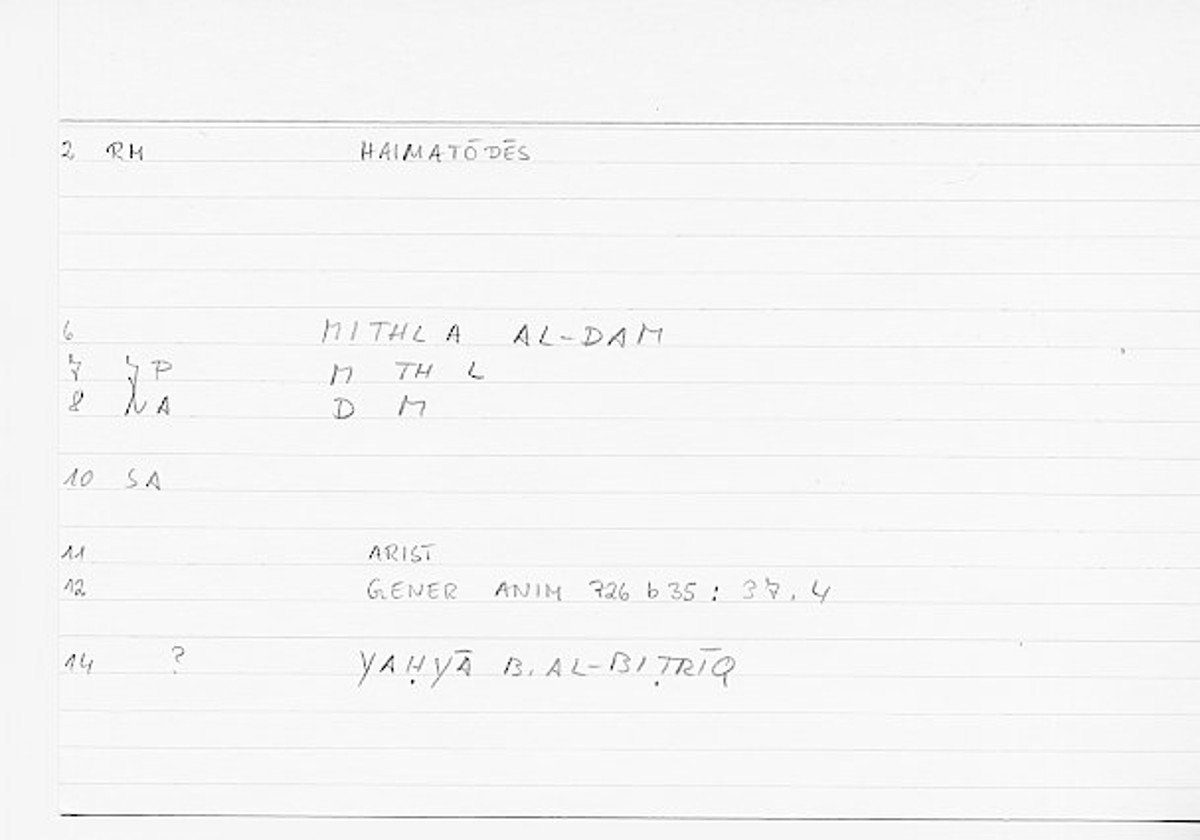 2 RM HAIMATŌDĒS
6 MITHLA AL-DAM
7 P M TH L
8 NA D M
10 SA
11 ARIST
12 GENER ANIM 726 b 35 : 37. 4
14 ? YAḤYĀ B. AL-BIṬRĪQ